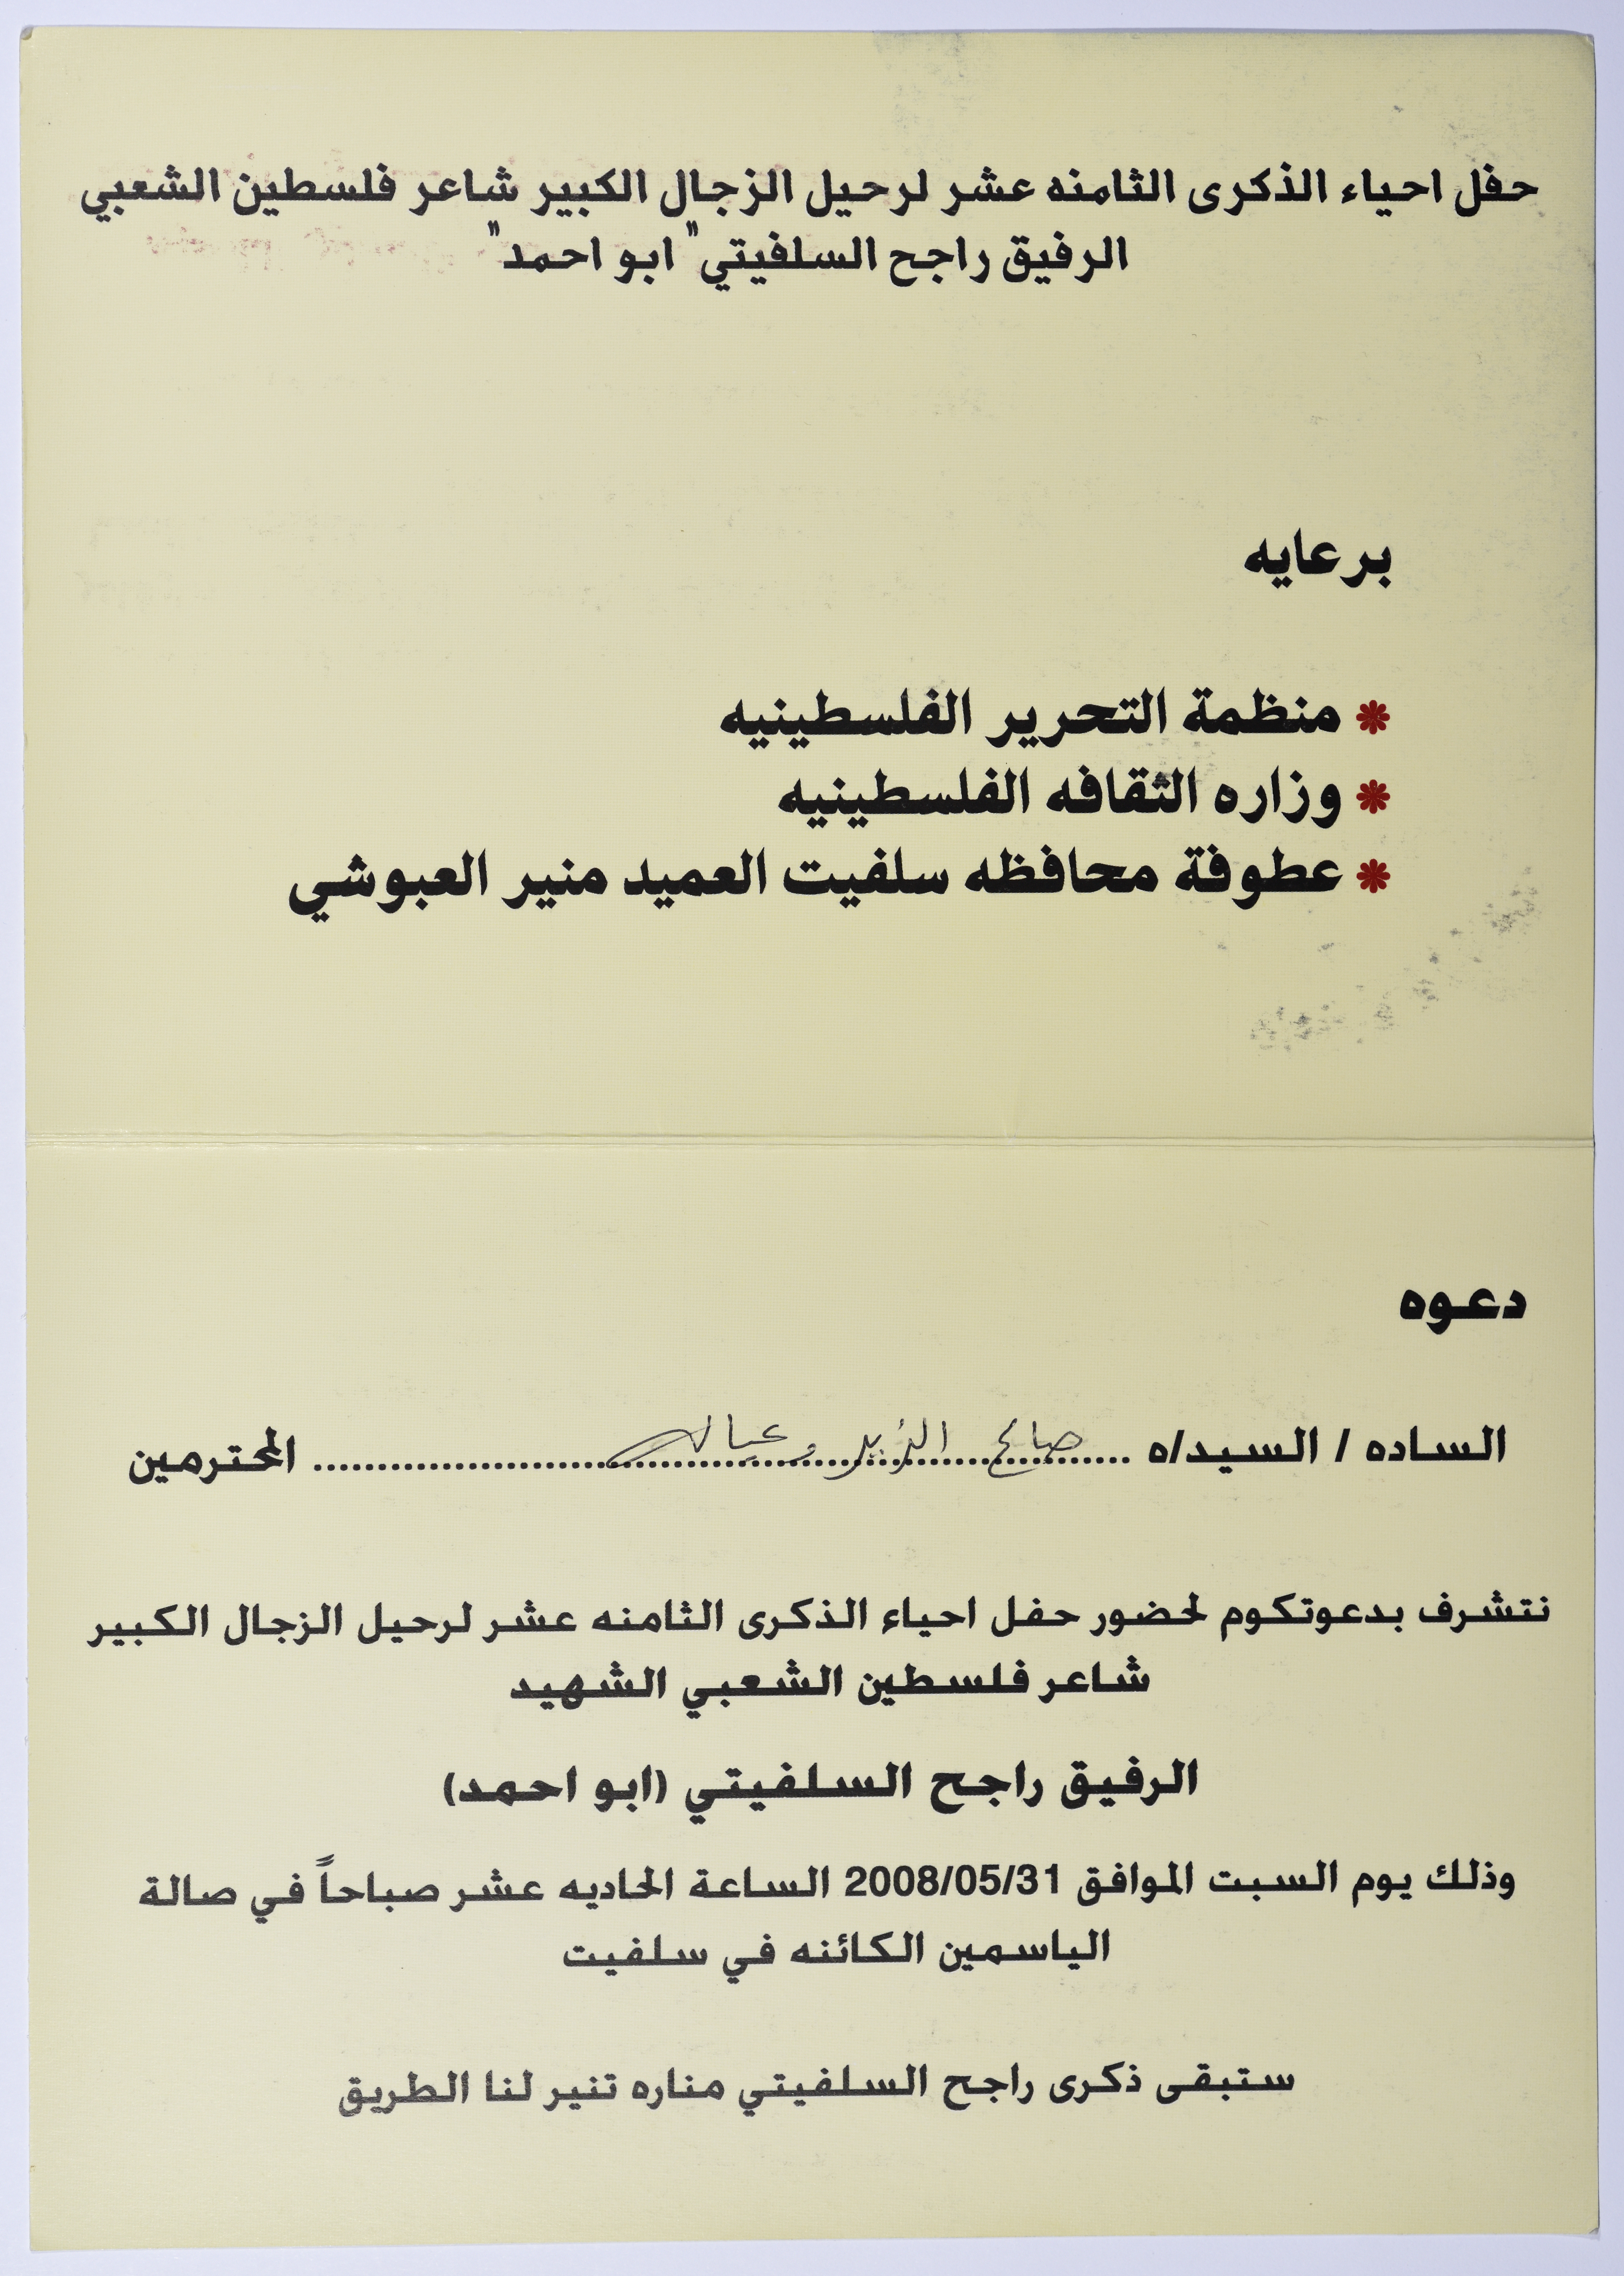 حفل احياء الذكرى الثامنه عشر لرحيل الزجال الكبير شاعر فلسطين الشعبي
الرفيق راجح السلفيتي "ابو احمد"
برعايه
* منظمة التحرير الفلسطينيه
* وزاره الثقافه الفلسطينيه
* عطوفة محافظه سلفيت العميد منير العبوشي
دعوه
الساده / السيد/ه ........ صالح ........ المحترمين
نتشرف بدعوتكوم لحضور حفل احياء الذكرى الثامنه عشر لرحيل الزجال الكبير
شاعر فلسطين الشعبي الشهيد
الرفيق راجح السلفيتي (ابو احمد)
وذلك يوم السبت الموافق 2008/05/31 الساعة الحاديه عشر صباحاً في صالة
الياسمين الكائنه في سلفيت
ستبقى ذكرى راجح السلفيتي مناره تنير لنا الطريق